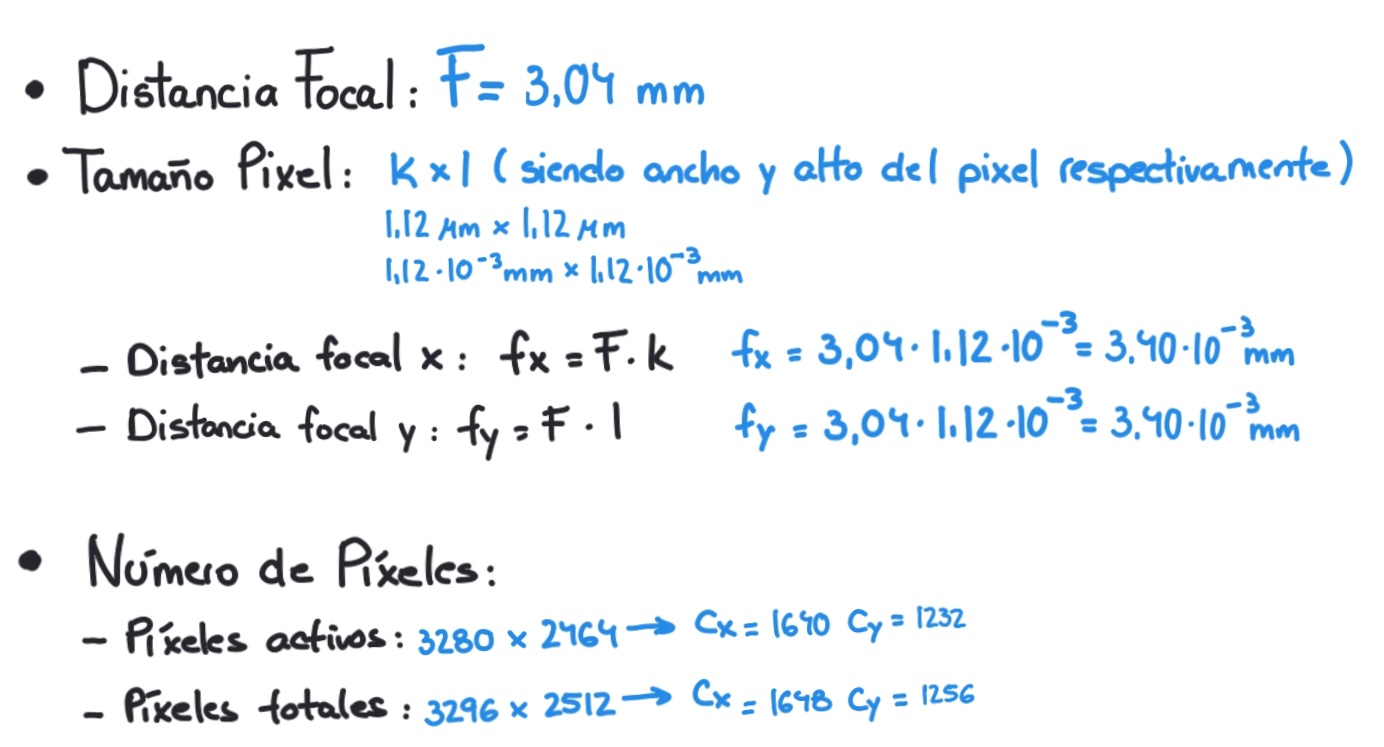 • Distancia Focal: F = 3,04 mm
• Tamaño Pixel: k x l (siendo ancho y alto del pixel respectivamente)
1,12 μm x 1,12 μm
1,12·10⁻³mm x 1,12·10⁻³mm
– Distancia focal x: fx = F·k fx = 3,04·1,12·10⁻³ = 3,40·10⁻³mm
– Distancia focal y: fy = F·l fy = 3,04·1,12·10⁻³ = 3,40·10⁻³mm
• Número de Píxeles:
– Píxeles activos: 3280 x 2464 → Cx = 1640 Cy = 1232
– Píxeles totales: 3296 x 2512 → Cx = 1648 Cy = 1256